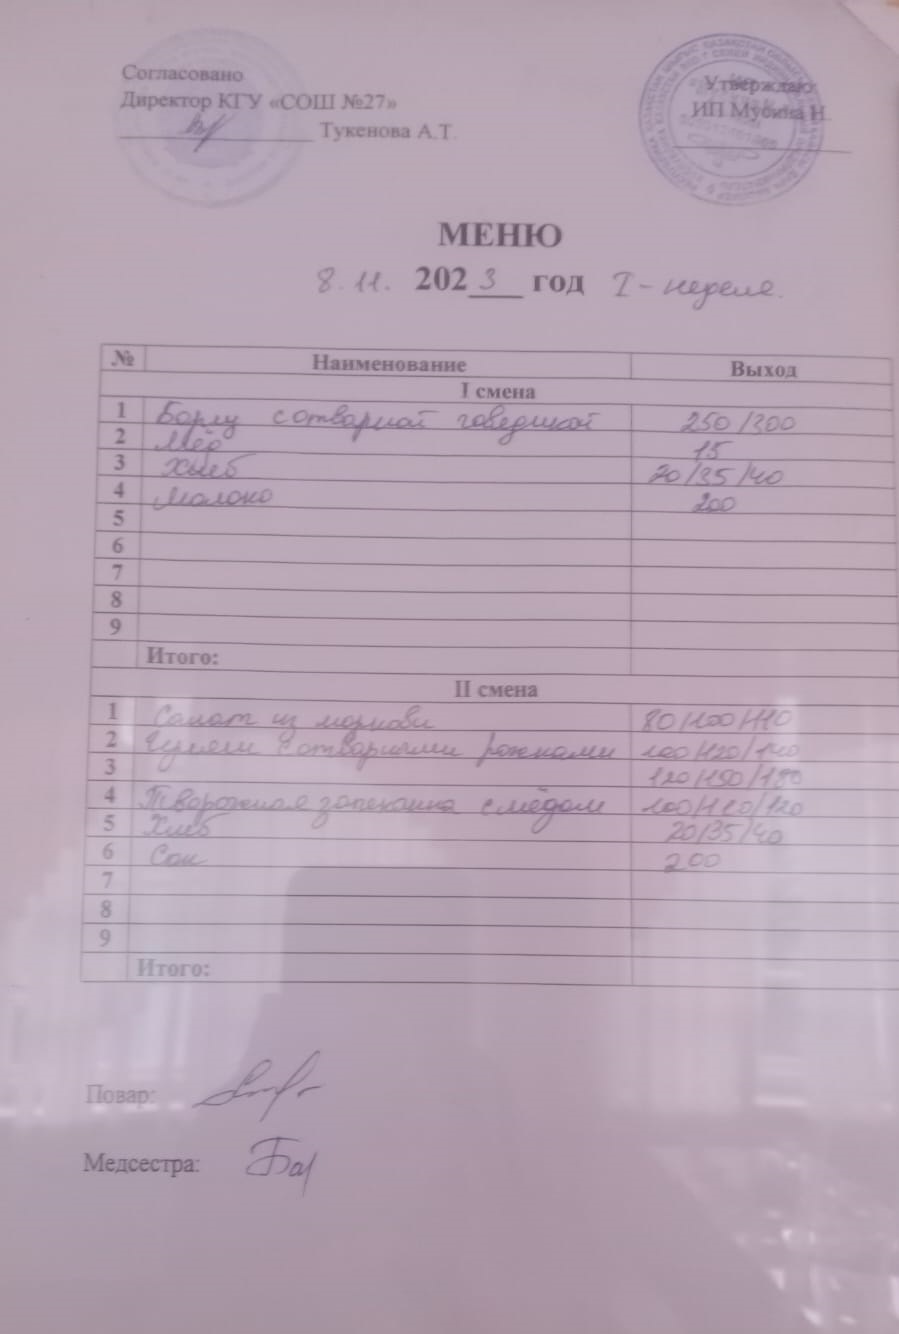 Согласовано
Утверждаю
Директор КГУ «СОШ №27»
ИП Мусина Н.
Тукенова А.Т.
МЕНЮ
8.11. 2023 год I-неделя.
№ Наименование Выход
I смена
1 Борщ с отварной говядиной 250/300
2 Мёд 15
3 Хлеб 20/35/40
4 Молоко 200
5
6
7
8
9
Итого:
II смена
1 Салат из моркови 80/100/110
2 Гуляш с отварными рожками 100/120/140
3 120/150/180
4 Творожная запеканка с мёдом 100/110/120
5 Хлеб 20/35/40
6 Сок 200
7
8
9
Итого:
Повар:
Медсестра: